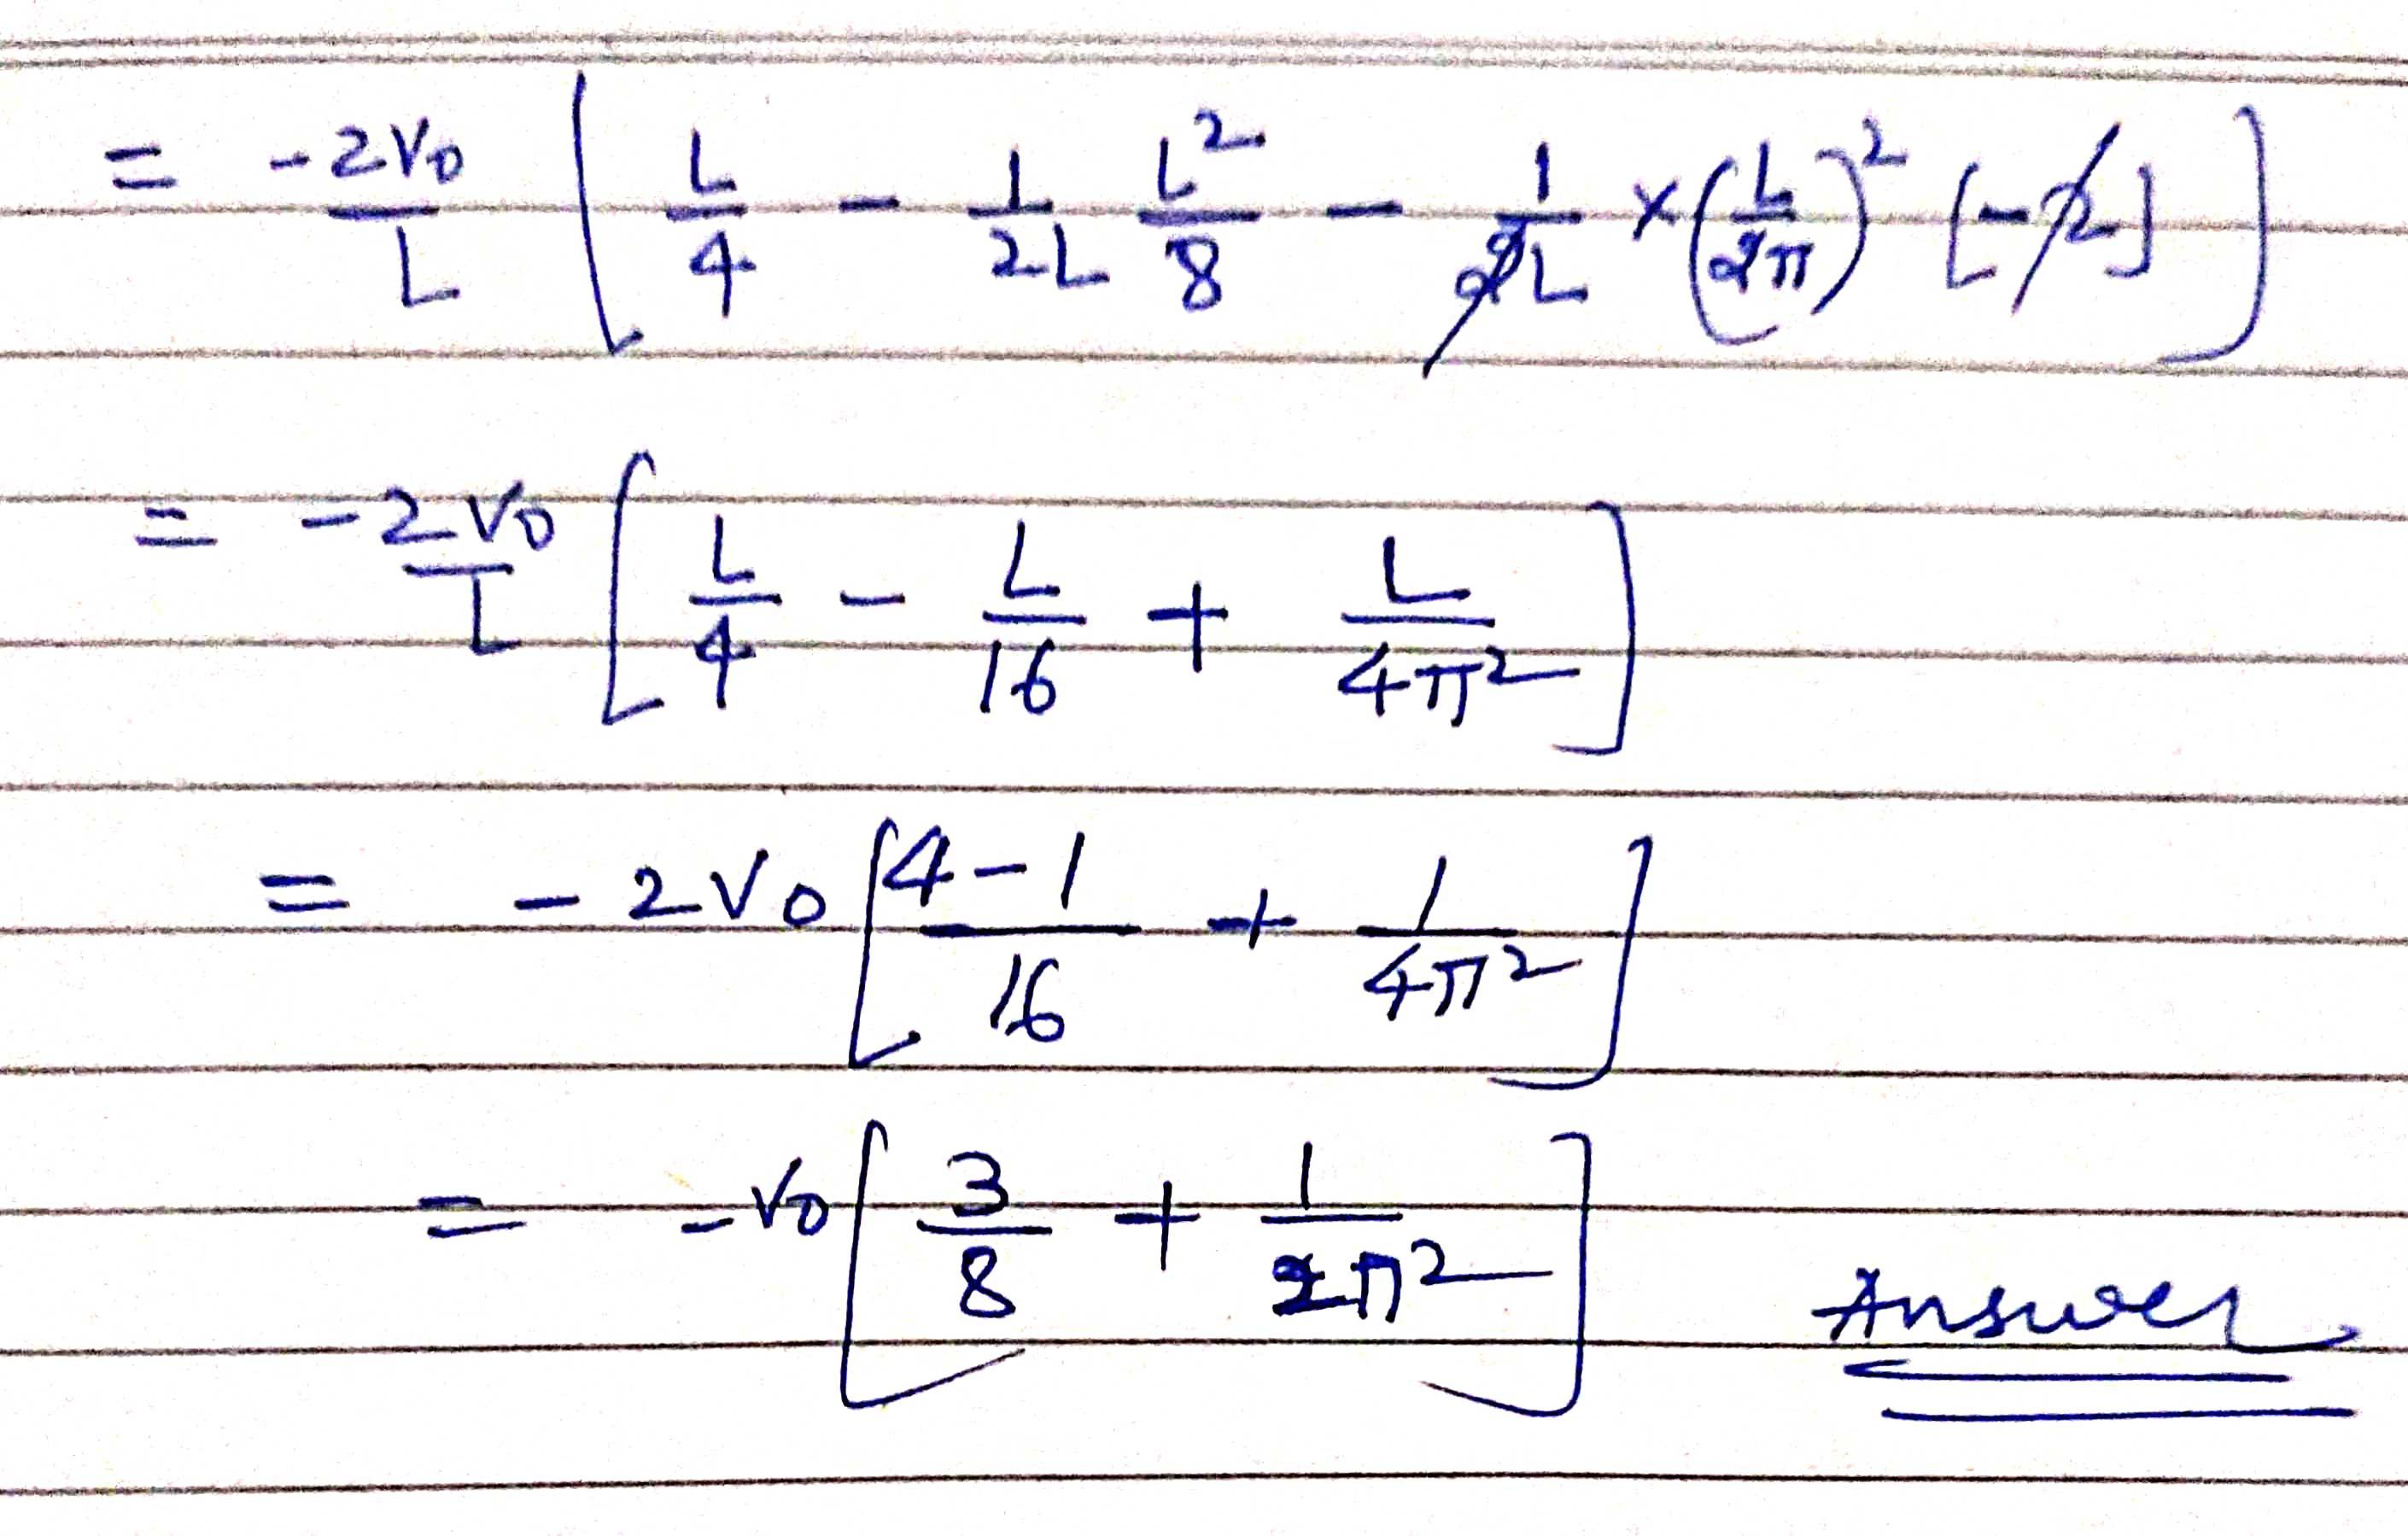 = -2V₀/L [ L/4 - 1/2L L²/8 - 1/2L × (L/2π)² [-2] ]
= -2V₀/L [ L/4 - L/16 + L/4π² ]
= -2V₀ [ 4-1/16 + 1/4π² ]
= -V₀ [ 3/8 + 1/2π² ] Answer